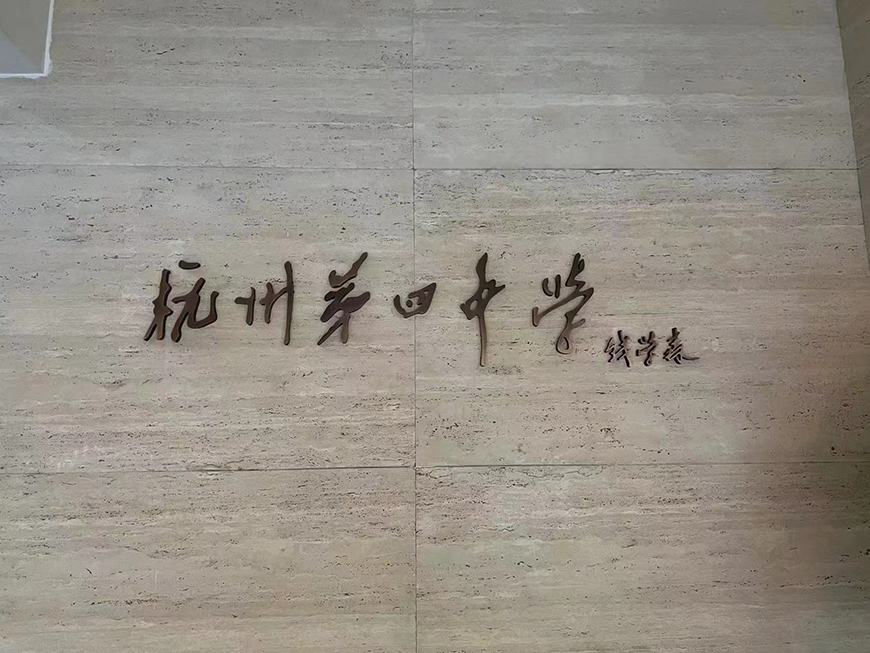 杭州第四中学
钱学森